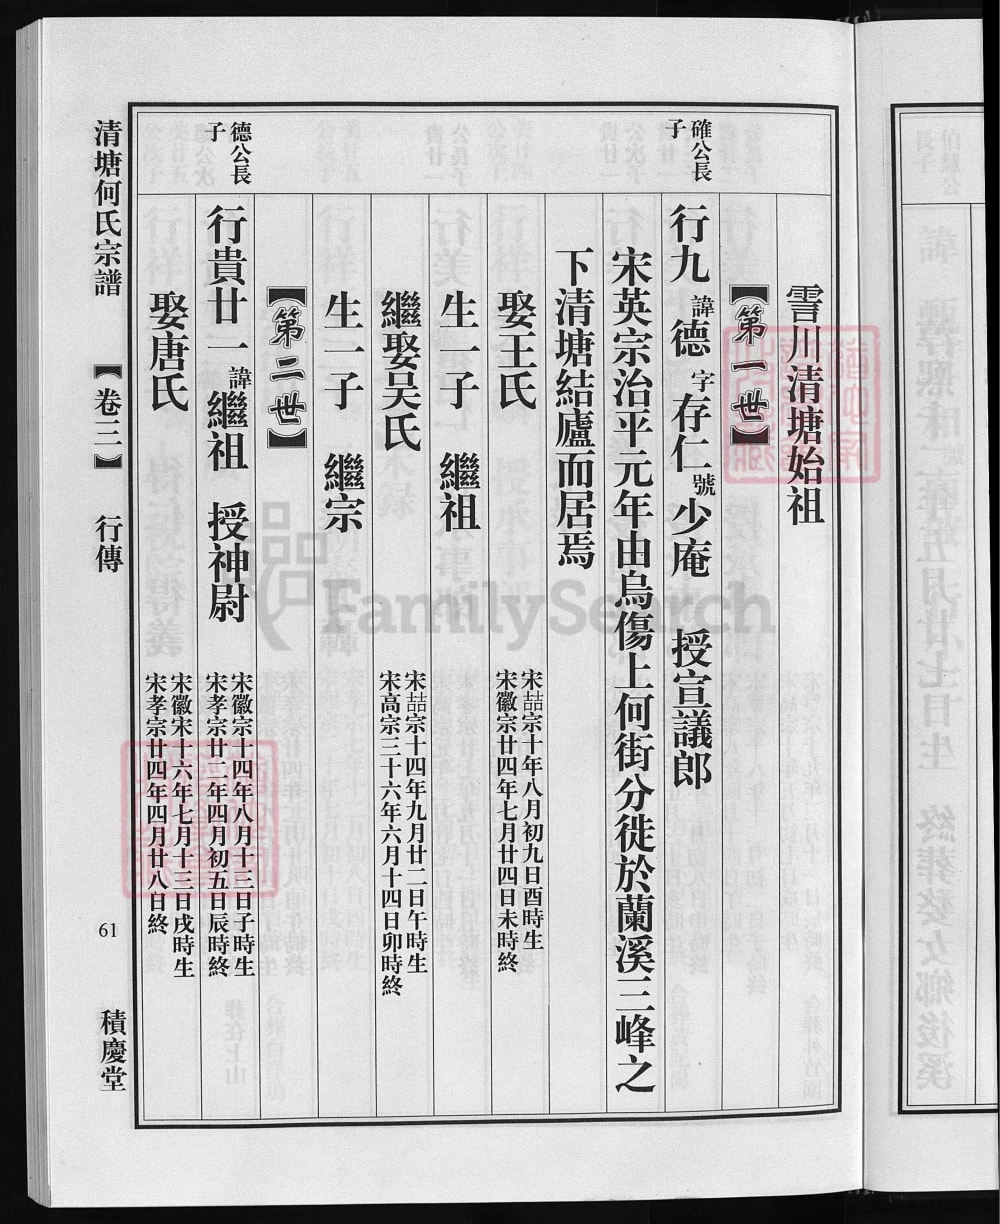 霅川清塘始祖
【第一世】
確公長子
行九 諱德 字存仁 號少庵 授宣議郎
宋英宗治平元年由烏傷上何街分徙於蘭溪三峰之
下清塘結廬而居焉
娶王氏
宋喆宗十年八月初九日酉時生
宋徽宗廿四年七月廿四日未時終
生一子 繼祖
繼娶吴氏
宋喆宗十四年九月廿二日午時生
宋高宗三十六年六月十四日卯時終
生一子 繼宗
【第二世】
德公長子
行貴廿一 諱繼祖 授神尉
宋徽宗十四年八月十三日子時生
宋孝宗廿二年四月初五日辰時終
娶唐氏
宋徽宋十六年七月十三日戌時生
宋孝宗廿四年四月廿八日終
清塘何氏宗譜 【卷三】 行傳 61 積慶堂
FamilySearch